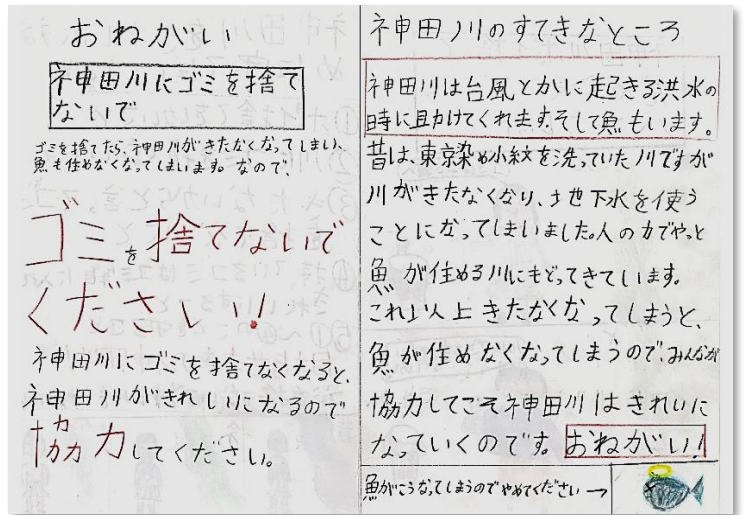 おねがい
神田川にゴミを捨て
ないで
ゴミを捨てたら、神田川がきたなくなってしまい、
魚も住めなくなってしまいます。なので、
ゴミを捨てないで
ください!!
神田川にゴミを捨てなくなると、
神田川がきれいになるので
協力してください。
神田川のすてきなところ
神田川は台風とかに起きる洪水の
時に助けてくれます。そして魚もいます。
昔は、東京染め小紋を洗っていた川ですが
川がきたなくなり、地下水を使う
ことになってしまいました。人の力でやっと
魚が住める川にもどってきています。
これ以上きたなくなってしまうと、
魚が住めなくなってしまうので、みんなが
協力してこそ神田川はきれいに
なっていくのです。おねがい!
魚がこうなってしまうのでやめてください→